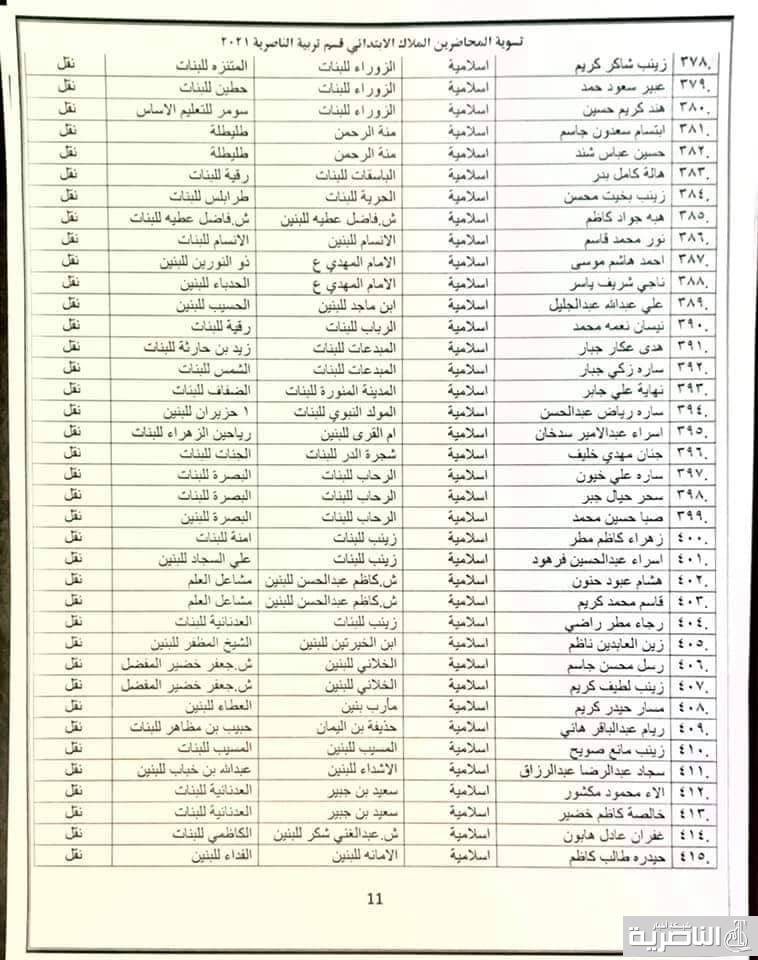 تسوية المحاضرين الملاك الابتدائي قسم تربية الناصرية ٢٠٢١
٣٧٨. زينب شاكر كريم اسلامية الزوراء للبنات المتنزه للبنات نقل
٣٧٩. عبير سعود حمد اسلامية الزوراء للبنات حطين للبنات نقل
٣٨٠. هند كريم حسين اسلامية الزوراء للبنات سومر للتعليم الاساس نقل
٣٨١. ابتسام سعدون جاسم اسلامية منة الرحمن طليطلة نقل
٣٨٢. حسين عباس شند اسلامية منة الرحمن طليطلة نقل
٣٨٣. هالة كامل بدر اسلامية الباسقات للبنات رقية للبنات نقل
٣٨٤. زينب بخيت محسن اسلامية الحرية للبنات طرابلس للبنات نقل
٣٨٥. هبه جواد كاظم اسلامية ش.فاضل عطيه للبنين ش.فاضل عطيه للبنات نقل
٣٨٦. نور محمد قاسم اسلامية الانسام للبنين الانسام للبنات نقل
٣٨٧. احمد هاشم موسى اسلامية الامام المهدي ع ذو النورين للبنين نقل
٣٨٨. ناجي شريف ياسر اسلامية الامام المهدي ع الحدباء للبنين نقل
٣٨٩. علي عبدالله عبدالجليل اسلامية ابن ماجد للبنين الحسيب للبنين نقل
٣٩٠. نيسان نعمه محمد اسلامية الرباب للبنات رقية للبنات نقل
٣٩١. هدى عكار جبار اسلامية المبدعات للبنات زيد بن حارثة للبنات نقل
٣٩٢. ساره زكي جبار اسلامية المبدعات للبنات الشمس للبنات نقل
٣٩٣. نهاية علي جابر اسلامية المدينة المنورة للبنات الضفاف للبنات نقل
٣٩٤. ساره رياض عبدالحسن اسلامية المولد النبوي للبنات ١ حزيران للبنين نقل
٣٩٥. اسراء عبدالامير سدخان اسلامية ام القرى للبنين رياحين الزهراء للبنات نقل
٣٩٦. جنان مهدي خليف اسلامية شجرة الدر للبنات الجنات للبنات نقل
٣٩٧. ساره علي خيون اسلامية الرحاب للبنات البصرة للبنات نقل
٣٩٨. سحر حيال جبر اسلامية الرحاب للبنات البصرة للبنات نقل
٣٩٩. صبا حسين محمد اسلامية الرحاب للبنات البصرة للبنين نقل
٤٠٠. زهراء كاظم مطر اسلامية زينب للبنات امنة للبنات نقل
٤٠١. اسراء عبدالحسين فرهود اسلامية زينب للبنات علي السجاد للبنين نقل
٤٠٢. هشام عبود حنون اسلامية ش.كاظم عبدالحسن للبنين مشاعل العلم نقل
٤٠٣. قاسم محمد كريم اسلامية ش.كاظم عبدالحسن للبنين مشاعل العلم نقل
٤٠٤. رجاء مطر راضي اسلامية زينب للبنات العدنانية للبنات نقل
٤٠٥. زين العابدين ناظم اسلامية ابن الخيرتين للبنين الشيخ المظفر للبنين نقل
٤٠٦. رسل محسن جاسم اسلامية الخلاني للبنين ش.جعفر خضير المفضل نقل
٤٠٧. زينب لطيف كريم اسلامية الخلاني للبنين ش.جعفر خضير المفضل نقل
٤٠٨. مسار حيدر كريم اسلامية مأرب بنين العطاء للبنين نقل
٤٠٩. ريام عبدالباقر هاني اسلامية حذيفة بن اليمان حبيب بن مظاهر للبنات نقل
٤١٠. زينب مانع صويح اسلامية المسيب للبنين المسيب للبنات نقل
٤١١. سجاد عبدالرضا عبدالرزاق اسلامية الاشداء للبنين عبدالله بن خباب للبنين نقل
٤١٢. الاء محمود مكشور اسلامية سعيد بن جبير العدنانية للبنات نقل
٤١٣. خالصة كاظم خضير اسلامية سعيد بن جبير العدنانية للبنات نقل
٤١٤. غفران عادل هابون اسلامية ش.عبدالغني شكر للبنين الكاظمي للبنات نقل
٤١٥. حيدره طالب كاظم اسلامية الامانه للبنين الفداء للبنين نقل
11
شبكة اخبار
الناصرية